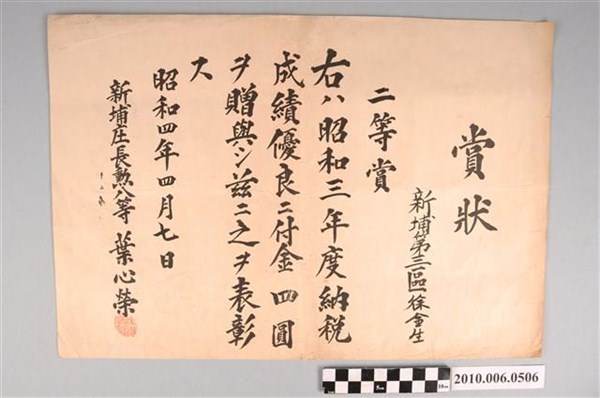 賞狀
新埔第三區 徐金生
二等賞
右ハ昭和三年度納税
成績優良ニ付金四圓
ヲ贈與シ茲ニ之ヲ表彰
ス
昭和四年四月七日
新埔庄長勲八等 葉心榮
2010.006.0506